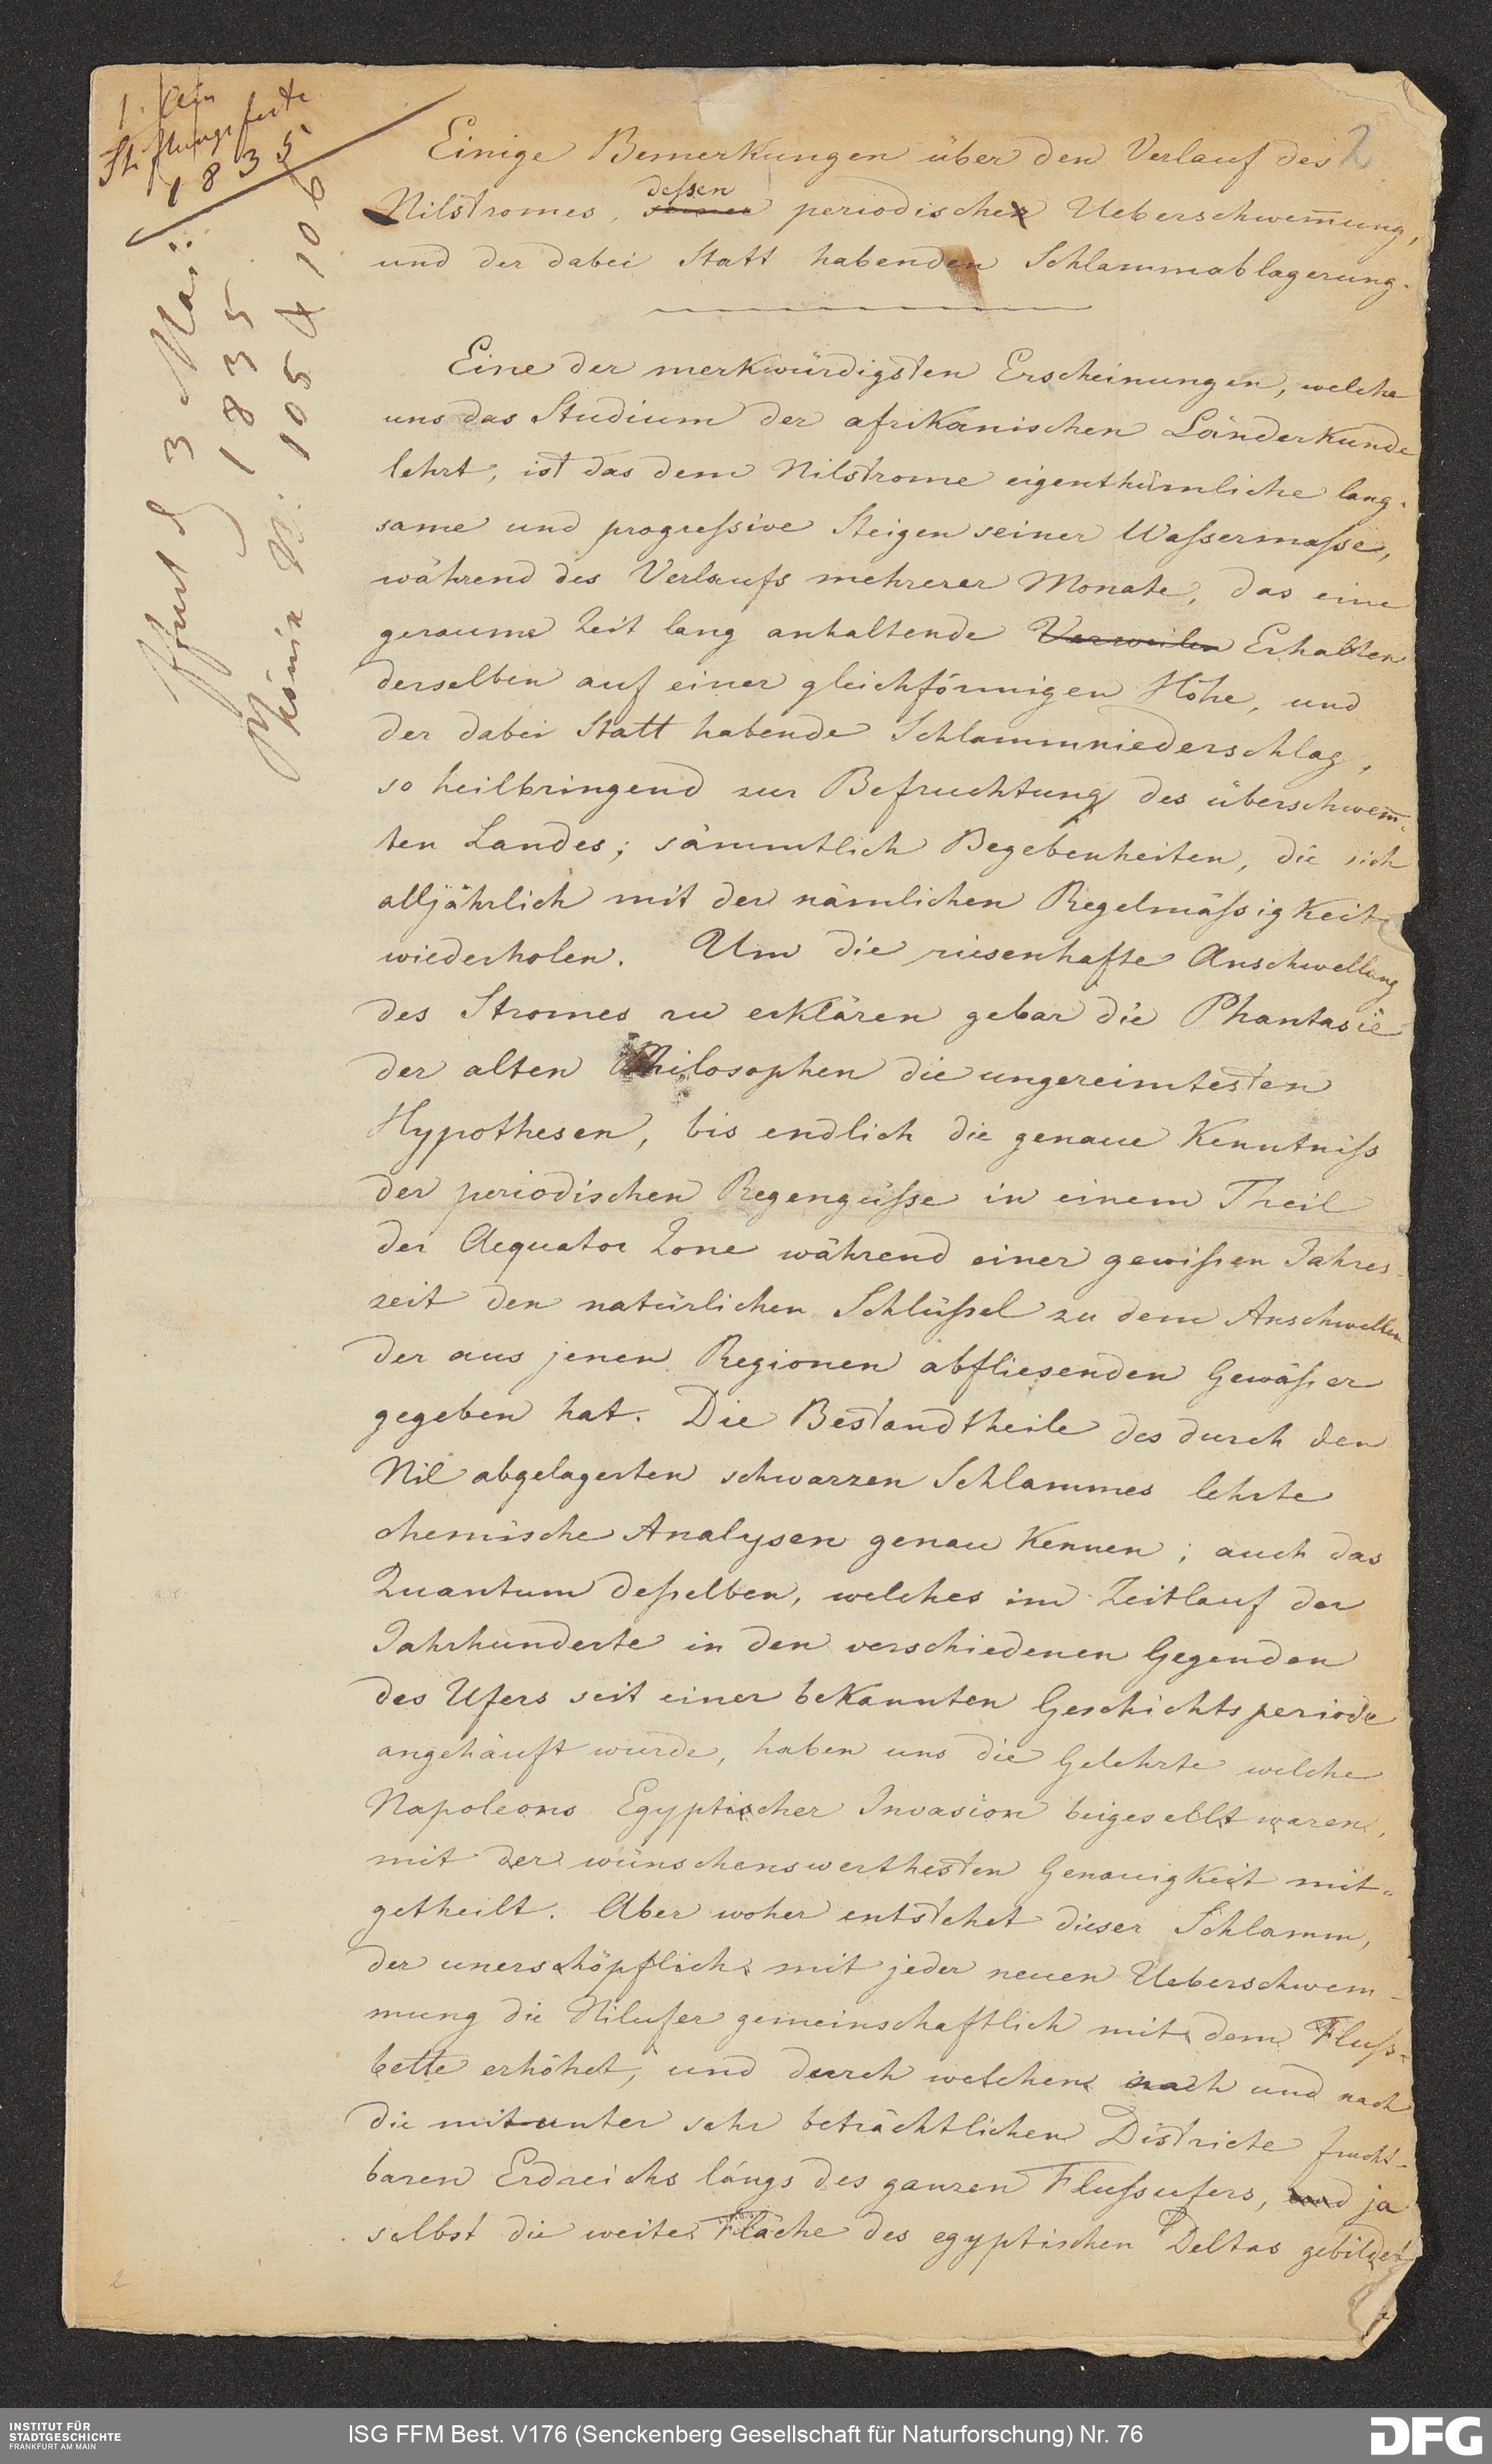 Stiftungsfeste
1835
3 Mai
1835
105 & 106
2
Einige Bemerkungen über den Verlauf des
Nilstromes, dessen seiner periodischen Ueberschwem̄ung,
und der dabei Statt habenden Schlammablagerung.
Eine der merkwürdigsten Erscheinungen, welche
uns das Studium der afrikanischen Länderkunde
lehrt, ist das dem Nilstrome eigenthümliche lang-
same und progressive Steigen seiner Wassermasse,
während des Verlaufs mehrerer Monate, das eine
geraume Zeit lang anhaltende Verweilen Erhalten
derselben auf einer gleichförmigen Höhe, und
der dabei Statt habende Schlammniederschlag,
so heilbringend zur Befruchtung des überschwem̄-
ten Landes; sämmtlich Begebenheiten, die sich
alljährlich mit der nämlichen Regelmässigkeit
wiederholen. Um die riesenhafte Anschwellung
des Stromes zu erklären gebar die Phantasie
der alten Philosophen die ungereimtesten
Hypothesen, bis endlich die genaue Kenntniss
der periodischen Regengüsse in einem Theil
der Aequator Zone während einer gewissen Jahres-
zeit den natürlichen Schlüssel zu dem Anschwellen
der aus jenen Regionen abfliesenden Gewässer
gegeben hat. Die Bestandtheile des durch den
Nil abgelagerten schwarzen Schlammes lehrte
chemische Analysen genau kennen; auch das
Quantum desselben, welches im Zeitlauf der
Jahrhunderte in den verschiedenen Gegenden
des Ufers seit einer bekannten Geschichtsperiode
angehäuft wurde, haben uns die Gelehrte welche
Napoleons Egyptischer Invasion beigesellt waren,
mit der wünschenswerthesten Genauigkeit mit-
getheilt. Aber woher entstehet dieser Schlamm,
der unerschöpflich mit jeder neuen Ueberschwem-
mung die Nilufer gemeinschaftlich mit dem Fluss-
bette erhöhet, und durch welchen nach und nach
die mitunter sehr beträchtlichen Districte frucht-
baren Erdreichs längs des ganzen Flussufers, und ja
selbst die weite Fläche des egyptischen Deltas gebildet
2
INSTITUT FÜR
STADTGESCHICHTE
FRANKFURT AM MAIN
ISG FFM Best. V176 (Senckenberg Gesellschaft für Naturforschung) Nr. 76
DFG